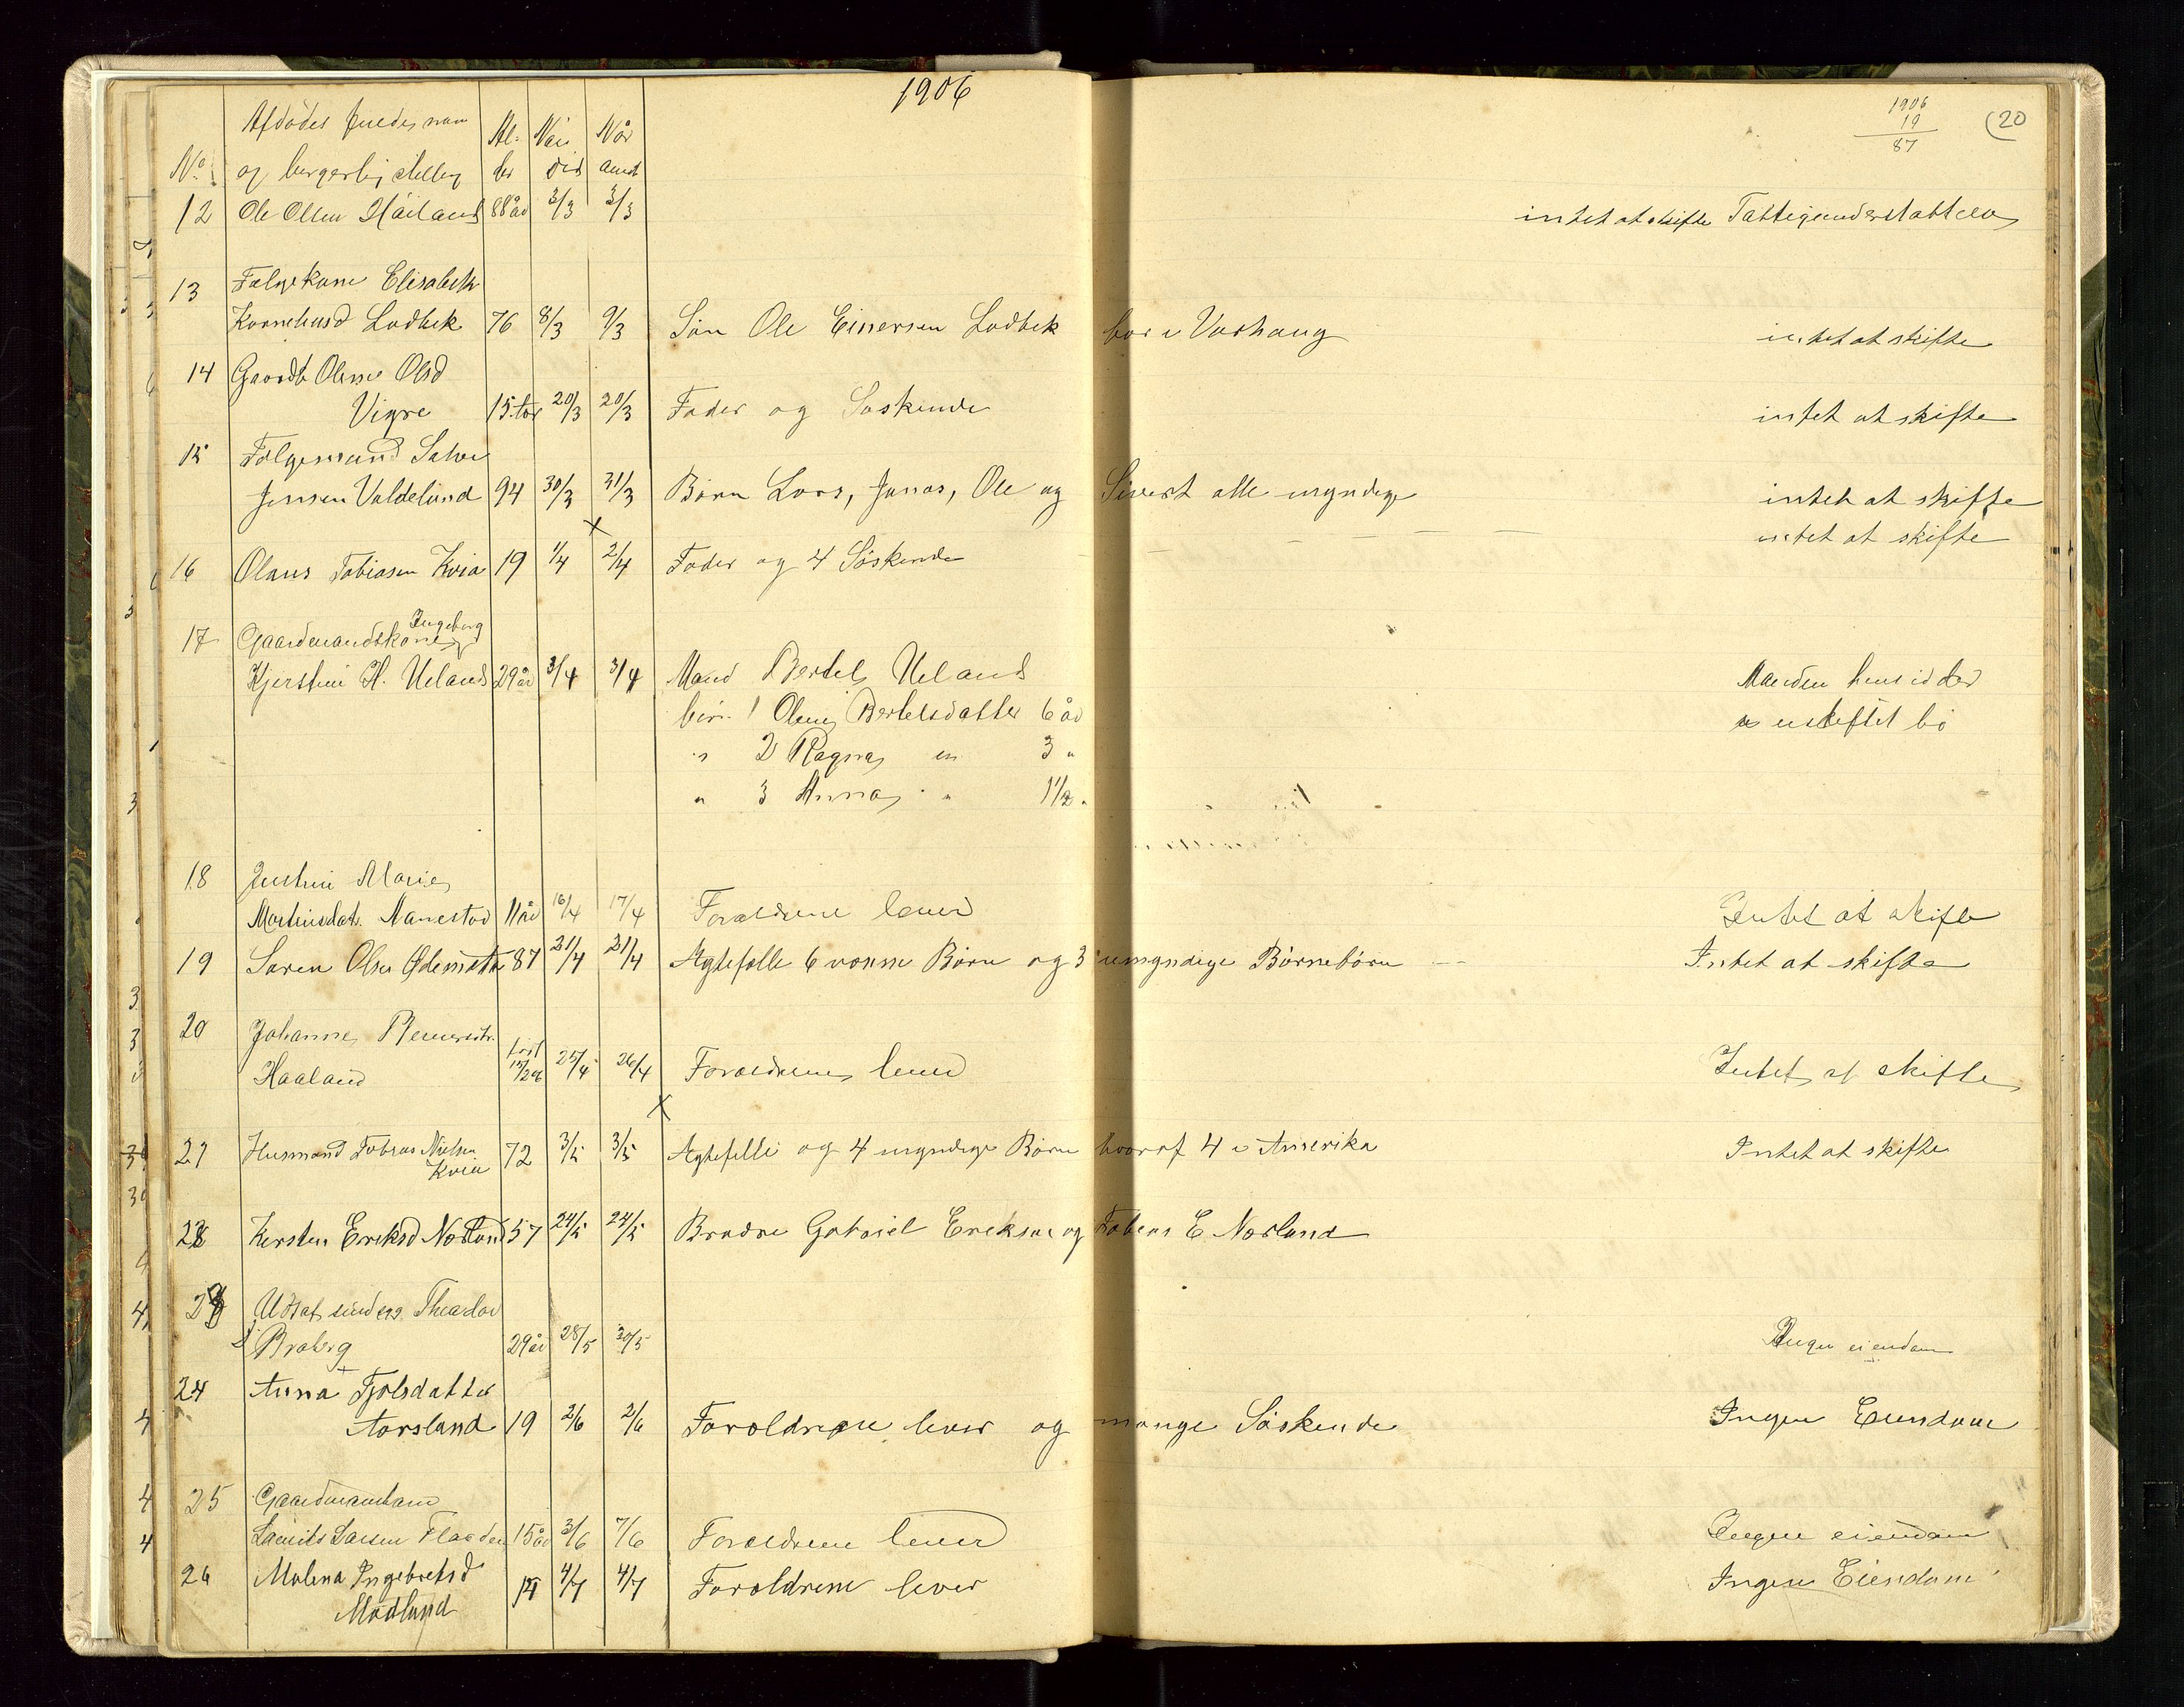 1906
1906
19
87
20
Afdødes fulde navn
Al- Naar Når
No og borgerlig stilling der død anmt
12 Ole Olsen Håiland 88 år 3/3 3/3 intet at skifte Fattigunderstøttelse
13 Følgekone Elisabeth
Kornelusd Lodbek 76 8/3 9/3 Søn Ole Einersen Lodbek bor i Varhaug intet at skifte
14 Gaardb Olene Olsd
Vigre 15 år 20/3 20/3 Fader og Søskende intet at skifte
15 Følgemand Salve
Jensen Valdeland 94 30/3 31/3 Børn Lars, Jonas, Ole og Sivert alle myndige intet at skifte
16 Olaus Tobiasen Kvia 19 1/4 2/4 Fader og 4 Søskende intet at skifte
17 Gaardmandskone Ingeborg
Kjerstine H. Ueland 29 år 3/4 3/4 Mand Bertel Ueland Manden hensidder
børn 1 Oline Bertelsdatter 6 år i uskiftet bo
" 2 Ragna " 3 "
" 3 Anna " 1 1/2 "
18 Justine Marie
Martinsdat. Nærestad 11 år 16/4 17/4 Forældrene lever Intet at skifte
19 Søren Olsen Ødemotten 87 21/4 21/4 Ægtefelle 6 voxne Børn og 3 umyndige Børnebørn Intet at skifte
20 Johanne
Haaland 25/4 26/4 Forældrene lever Intet at skifte
21 Husmand Tobias Nielsen
Kvia 72 3/5 3/5 Ægtefelle og 4 myndige Børn hvoraf 4 i Amerika Intet at skifte
22 Kersten Eriksd Nørland 57 24/5 24/5 Brødre Gabriel Eriksen og Tobias E Nørland
23 Theodor
Broberg 29 år 28/5 30/5 Ingen eiendom
24 Anna Tjølsdatter
Aarsland 19 2/6 2/6 Foroldrene lever og mange Søskende Ingen Eiendom
25 Gaardmandsøn
Laurits Larsen 15 år 3/6 7/6 Forældrene lever Ingen eiendom
26 Malena Ingebretsd
Modland 14 4/7 4/7 Foroldrene lever Ingen Eiendom